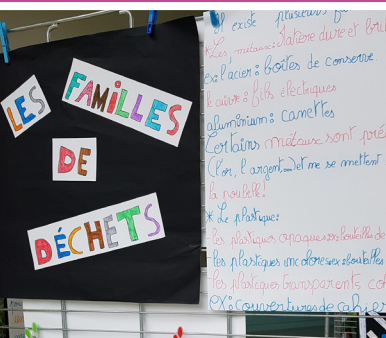 LES
FAMILLES
DE
DÉCHETS
Il existe plusieurs
* Les métaux: Matière dure et bri
ex: l'acier: Boîtes de conserve.
le cuivre: fils électriques
aluminium: canettes
Certains métaux sont pré
(l'or, l'argent,...) et ne se mettent
la poubelle!
* Le plastique:
les plastiques opaques: ex: bouteilles de
les plastiques incolores: ex: bouteilles
les plastiques transparents co
ex: couvertures de cahier